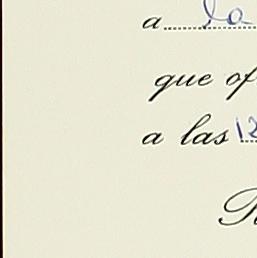 a la
que of
a las 12